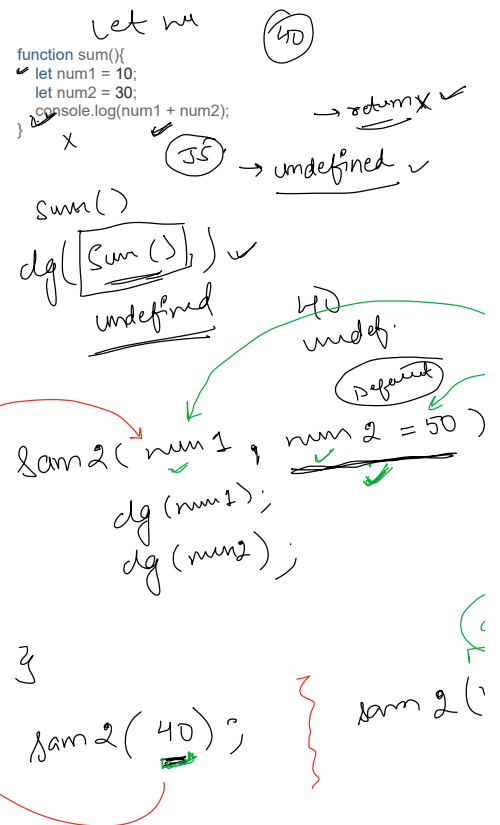 Let nu
40
function sum(){
let num1 = 10;
let num2 = 30;
console.log(num1 + num2);
}
x
→ return x
JS → undefined
sum()
clg( sum() ; )
undefined
40
undef.
Default
sam2( num1 , num2 = 50 )
clg (num1);
clg (num2);
}
sam2( 40 );
sam2(